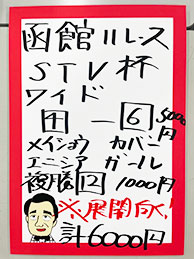 函館11レース
STV杯
ワイド
4 — 6 5000円
メイショウ カバー
エニシア ガール
複勝12 1000円
※展開向く!
計6000円